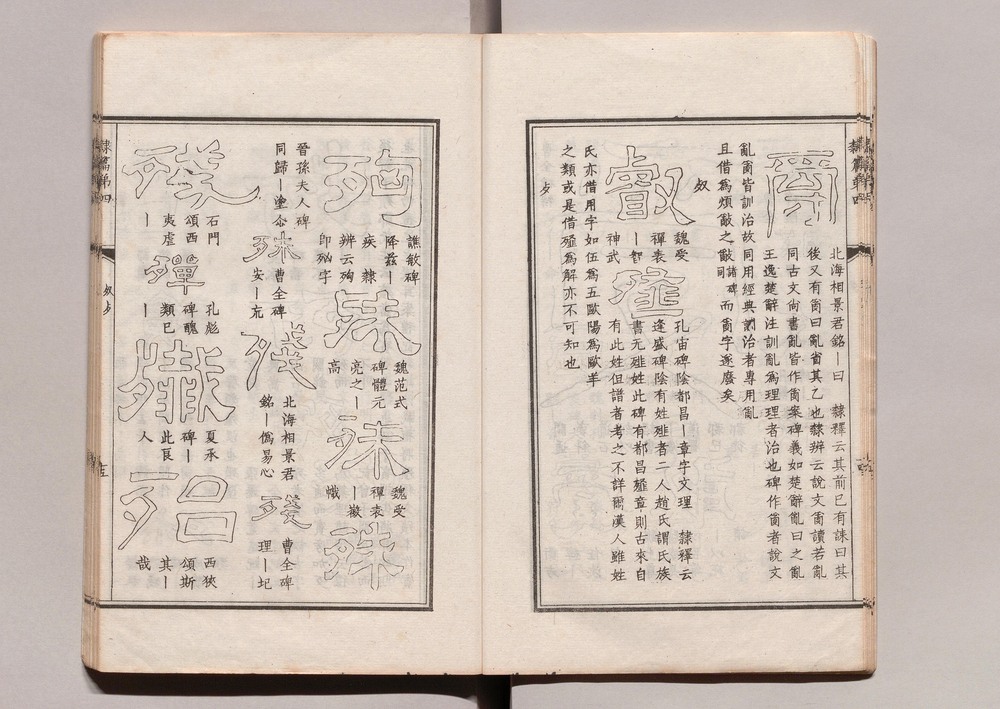 隸篇第四
𤔔
北海相景君銘｜曰　隸釋云其前已有誄曰其
後又有𤔔曰亂省其乙也隸辨云說文𤔔讀若亂
同古文尚書亂皆作𤔔案碑義如楚辭亂曰之亂
王逸楚辭注訓亂爲理理者治也碑作𤔔者說文
亂𤔔皆訓治故同用經典訓治者專用亂
且借爲煩𢿢之𢿢諸碑同而𤔔字遂廢矣
𣦻
叡
魏受
禪表
｜智
神武
孔宙碑陰都昌｜章字文理　隸釋云
逢盛碑陰有姓者二人趙氏謂氏族
書无姓此碑有都昌章則古來自
有此姓但譜者考之不詳爾漢人雖姓
氏亦借用字如伍爲五歐陽爲歐羊
之類或是借爲解亦不可知也
歹
殉
譙敏碑
降茲｜
疾　隸
辨云殉
即殉字
殊
魏范式
碑體元
亮之｜
高
殊
魏受
禪表
｜徽
幟
殊
晉孫夫人碑
同歸｜塗念
殊
曹全碑
安｜亢
殘
北海相景君
銘｜僞易心
殘
曹全碑
理｜圮
殘
石門
頌西
夷虐
｜
殫
孔彪
碑醜
類已
｜
殲
夏承
碑｜
此良
人
殆
西狹
頌斯
其｜
哉
隸篇第四
𣦻歹